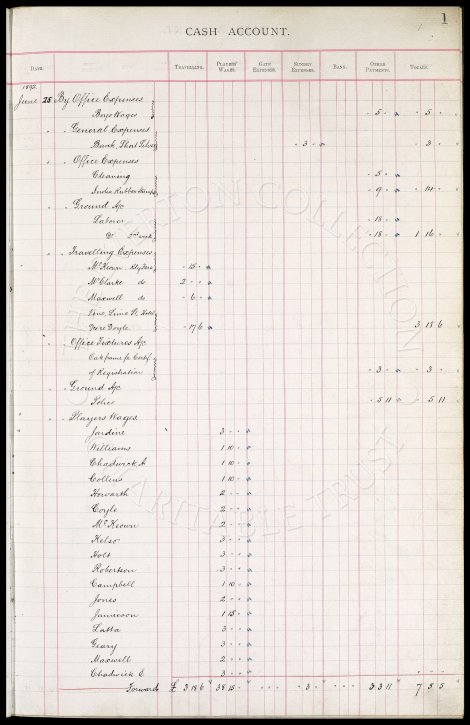 1
CASH ACCOUNT.
DATE. TRAVELLING. PLAYERS' WAGES. GATE EXPENSES. SUNDRY EXPENSES. BANK. OTHER PAYMENTS. TOTALS.
June 25 By Office Expenses
Boys Wages - 5 - - 5 -
- - General Expenses
Bank, Short Silver - 3 - - 3 -
- - Office Expenses
Cleaning - 5 -
India Rubber Stamp - 9 - - 14 -
- - Ground A/c
Labour - 18 -
Do 2nd week - 18 - 1 16 -
- - Travelling Expenses
McKeown - 15 -
McClarke do 2 - -
Maxwell do - 6 -
Lime St. Hotel
Doyle - 17 6 3 18 6
- - Office Fixtures A/c
Oak frame for Certif.
of Registration - 3 - - 3 -
- - Ground A/c
Police - 5 11 - 5 11
- - Players Wages
Jardine 3 - -
Williams 1 10 -
Chadwick A 1 10 -
Collins 1 10 -
Howarth 2 - -
Coyle 2 - -
McKeown 2 - -
Kelso 3 - -
Holt 3 - -
Robertson 3 - -
Campbell 1 10 -
Jones 2 - -
Jamieson 1 15 -
Latta 3 - -
Geary 3 - -
Maxwell 2 - -
Chadwick E 3 - -
Forward £ 3 18 6 38 15 - - - - - 3 - 3 3 11 7 5 5
THE EVERTON COLLECTION
CHARITABLE TRUST